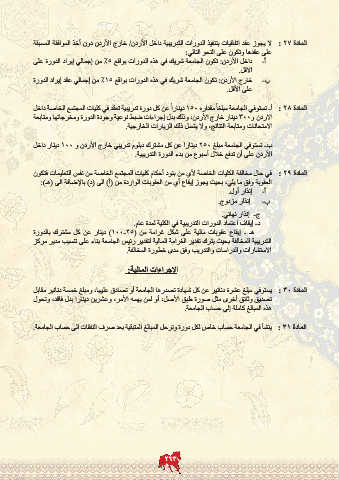 المادة ٢٧ : لا يجوز عقد اتفاقيات بتنفيذ الدورات التدريبية داخل الأردن/ خارج الأردن دون أخذ الموافقة المسبقة
على عقدها وتكون على النحو التالي:
أ- داخل الأردن: تكون الجامعة شريك في هذه الدورات بواقع ٥٪ من إجمالي إيراد الدورة على
الأقل.
ب- خارج الأردن: تكون الجامعة شريك في هذه الدورات بواقع ١٥٪ من إجمالي عقد إيراد الدورة
على الأقل.
المادة ٢٨ : أ- تستوفي الجامعة مبلغاً مقداره ١٥٠ ديناراً عن كل دورة تدريبية تعقد في كليات المجتمع الخاصة داخل
الأردن و ٣٠٠ دينار خارج الأردن، وذلك بدل إجراءات ضبط نوعية وجودة الدورة ومخرجاتها ومتابعة
الامتحانات ومتابعة النتائج، ولا يشمل ذلك الزيارات الخارجية.
ب- تستوفي الجامعة مبلغ ٢٥٠ ديناراً عن كل مشترك دبلوم تدريبي خارج الأردن و ١٠٠ دينار داخل
الأردن على أن تدفع خلال أسبوع من بدء الدورة التدريبية.
المادة ٢٩ : في حال مخالفة الكليات الخاصة لأي من بنود أحكام كليات المجتمع الخاصة من نفس التعليمات فتكون
العقوبة وفق ما يلي، بحيث يجوز إيقاع أي من العقوبات الواردة من (أ) الى (د) بالإضافة الى (هـ):
أ- إنذار أول.
ب- إنذار مزدوج.
ج- إنذار نهائي.
د- إيقاف اعتماد الدورات التدريبية في الكلية لمدة عام.
هـ - إيقاع عقوبات مالية على شكل غرامة من (٢٥-١٠٠) دينار عن كل مشترك بالدورة
التدريبية المخالفة بحيث يترك تقدير الغرامة المالية لتقدير رئيس الجامعة بناء على تنسيب مدير مركز
الاستشارات والدراسات والتدريب وفق مدى خطورة المخالفة.
الإجراءات المالية:
المادة ٣٠ : يستوفى مبلغ عشرة دنانير عن كل شهادة تصدرها الجامعة أو تصادق عليها، ومبلغ خمسة دنانير مقابل
تصديق وثائق أخرى مثل صورة طبق الأصل، أو لمن يهمه الأمر، وعشرين ديناراً بدل فاقد، وتحول
هذه المبالغ كاملة إلى حساب الجامعة.
المادة ٣١ : ينشأ في الجامعة حساب خاص لكل دورة وترحل المبالغ المتبقية بعد صرف النفقات الى حساب الجامعة.